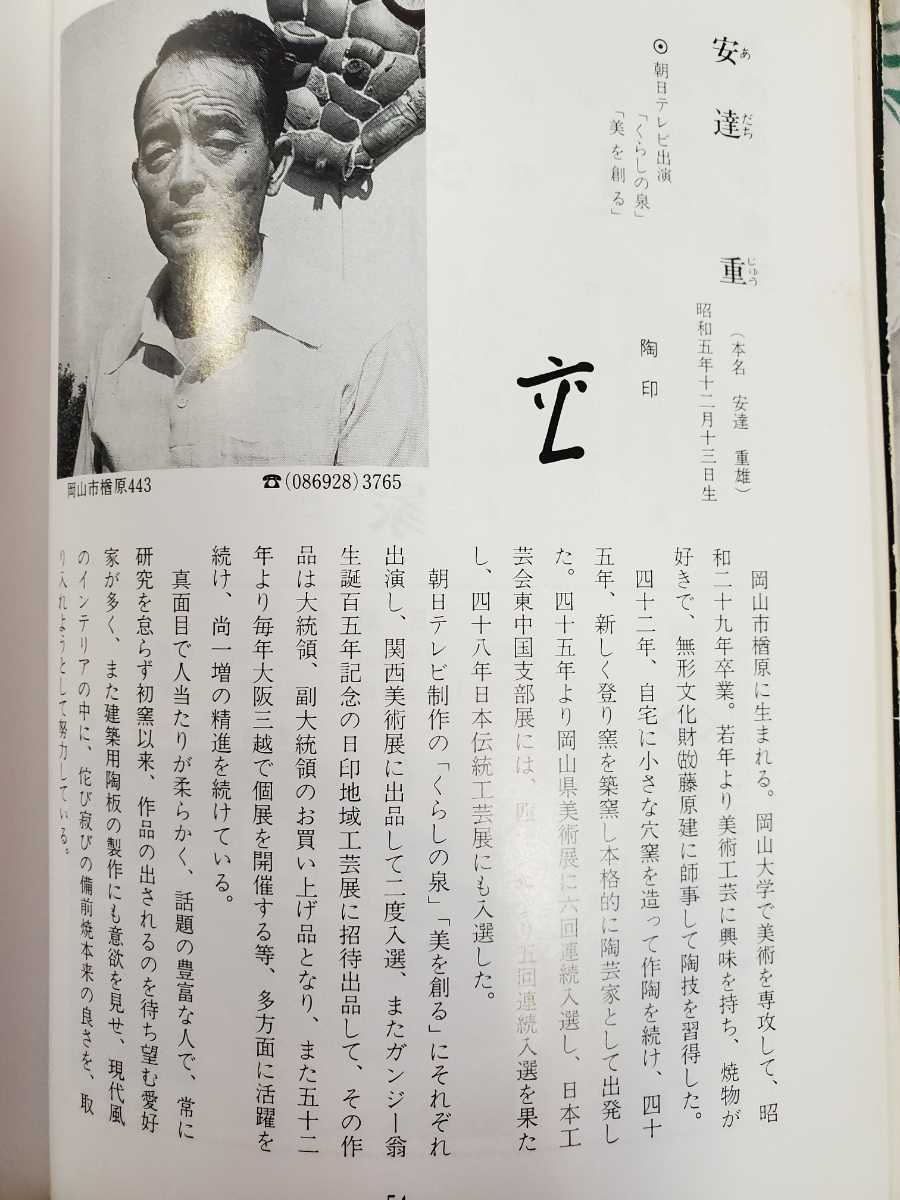 安達重
あ だち じゅう
(本名 安達 重雄)
昭和五年十二月十三日生
⊙朝日テレビ出演
「くらしの泉」
「美を創る」
陶印
岡山市楢原443
☎(086928)3765
岡山市楢原に生まれる。岡山大学で美術を専攻して、昭
和二十九年卒業。若年より美術工芸に興味を持ち、焼物が
好きで、無形文化財㈲藤原建に師事して陶技を習得した。
四十二年、自宅に小さな穴窯を造って作陶を続け、四十
五年、新しく登り窯を築窯し本格的に陶芸家として出発し
た。四十五年より岡山県美術展に六回連続入選し、日本工
芸会東中国支部展には、り五回連続入選を果た
し、四十八年日本伝統工芸展にも入選した。
朝日テレビ制作の「くらしの泉」「美を創る」にそれぞれ
出演し、関西美術展に出品して二度入選、またガンジー翁
生誕百五年記念の日印地域工芸展に招待出品して、その作
品は大統領、副大統領のお買い上げ品となり、また五十二
年より毎年大阪三越で個展を開催する等、多方面に活躍を
続け、尚一増の精進を続けている。
真面目で人当たりが柔らかく、話題の豊富な人で、常に
研究を怠らず初窯以来、作品の出されるのを待ち望む愛好
家が多く、また建築用陶板の製作にも意欲を見せ、現代風
のインテリアの中に、侘び寂びの備前焼本来の良さを、取
り入れようとして努力している。
54